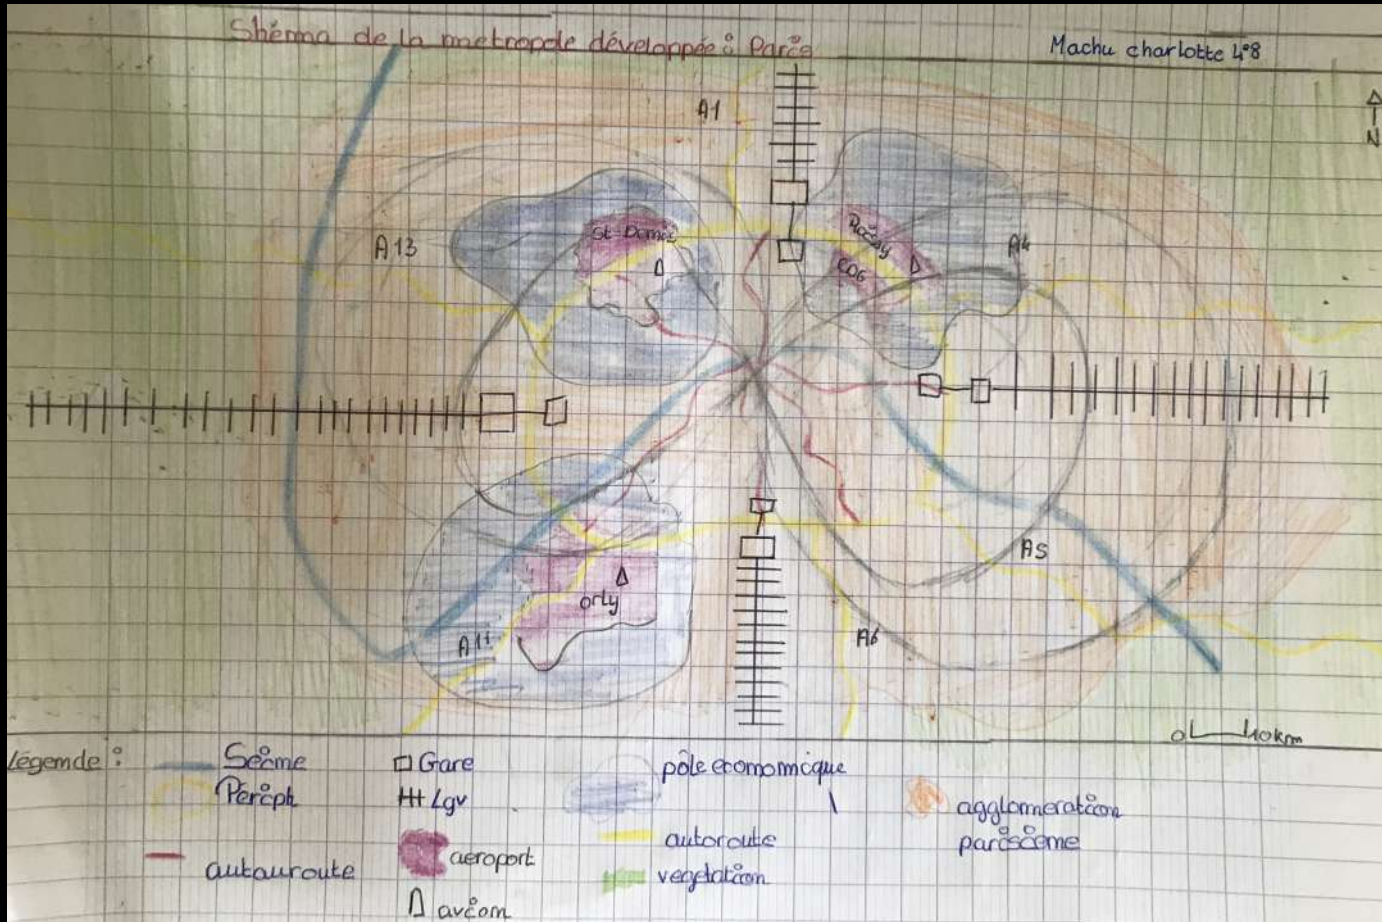 Shéma de la metropole développée : Paris
Machu charlotte 4°8
A1
N
A13
St Denis
Roissy
CDG
A4
A5
orly
A11
A6
0 10km
légende :
Seine
Périph
autauroute
Gare
Lgv
aeroport
avion
pôle economique
autoroute
vegetation
agglomeration
parisième